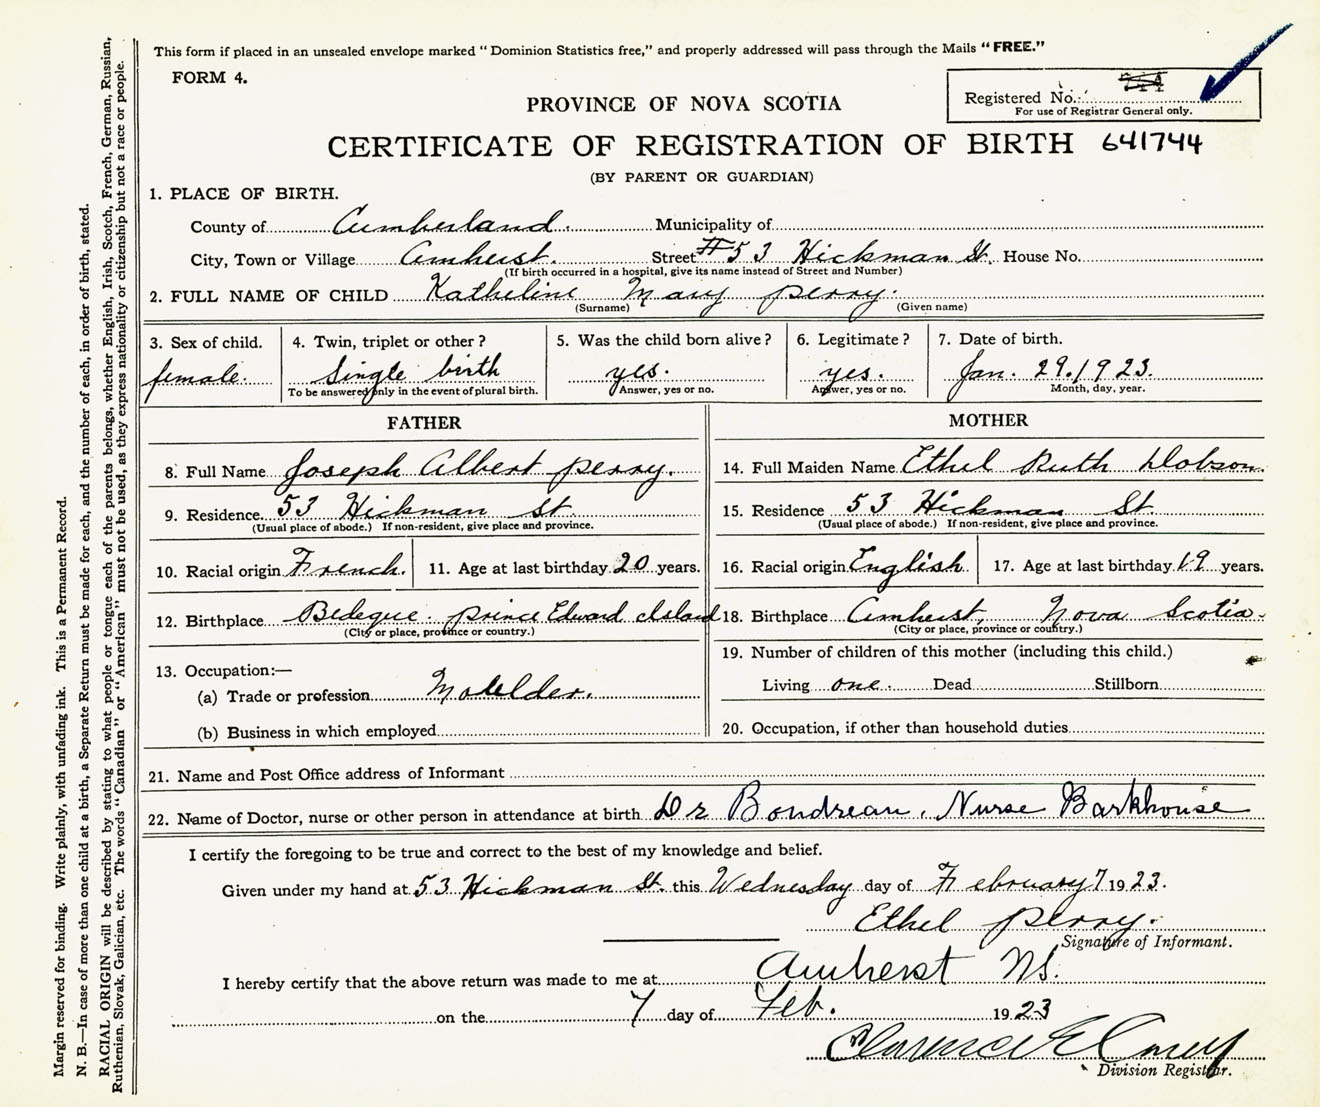 This form if placed in an unsealed envelope marked "Dominion Statistics free," and properly addressed will pass through the Mails "FREE."
FORM 4.
Registered No.
For use of Registrar General only.
PROVINCE OF NOVA SCOTIA
CERTIFICATE OF REGISTRATION OF BIRTH 641744
(BY PARENT OR GUARDIAN)
1. PLACE OF BIRTH.
County of Cumberland. Municipality of
City, Town or Village Amherst. Street #53 Hickman St. House No.
(If birth occurred in a hospital, give its name instead of Street and Number)
2. FULL NAME OF CHILD Katheline Mary Perry.
(Surname) (Given name)
3. Sex of child. 4. Twin, triplet or other? 5. Was the child born alive? 6. Legitimate? 7. Date of birth.
female. Single birth yes. yes. Jan. 29. 1923.
To be answered only in the event of plural birth. Answer, yes or no. Answer, yes or no. Month, day, year.
FATHER
8. Full Name Joseph Albert Perry.
9. Residence 53 Hickman St
(Usual place of abode.) If non-resident, give place and province.
10. Racial origin French. 11. Age at last birthday 20 years.
12. Birthplace Bedeque. Prince Edward Island
(City or place, province or country.)
13. Occupation:—
(a) Trade or profession Moulder.
(b) Business in which employed
MOTHER
14. Full Maiden Name Ethel Ruth Dobson.
15. Residence 53 Hickman St.
(Usual place of abode.) If non-resident, give place and province.
16. Racial origin English 17. Age at last birthday 19 years.
18. Birthplace Amherst, Nova Scotia.
(City or place, province or country.)
19. Number of children of this mother (including this child.)
Living one. Dead Stillborn
20. Occupation, if other than household duties
21. Name and Post Office address of Informant
22. Name of Doctor, nurse or other person in attendance at birth Dr Bondrean, Nurse Barkhouse
I certify the foregoing to be true and correct to the best of my knowledge and belief.
Given under my hand at 53 Hickman St. this Wednesday day of February 7 1923.
Ethel Perry.
Signature of Informant.
I hereby certify that the above return was made to me at Amherst NS.
on the 7 day of Feb. 1923
Clarence E
Division Registrar.
Margin reserved for binding. Write plainly, with unfading ink. This is a Permanent Record.
N. B.—In case of more than one child at a birth, a Separate Return must be made for each, and the number of each, in order of birth, stated.
RACIAL ORIGIN will be described by stating to what people or tongue each of the parents belongs, whether English, Irish, Scotch, French, German, Russian,
Ruthenian, Slovak, Galician, etc. The words "Canadian" or "American" must not be used, as they express nationality or citizenship but not a race or people.